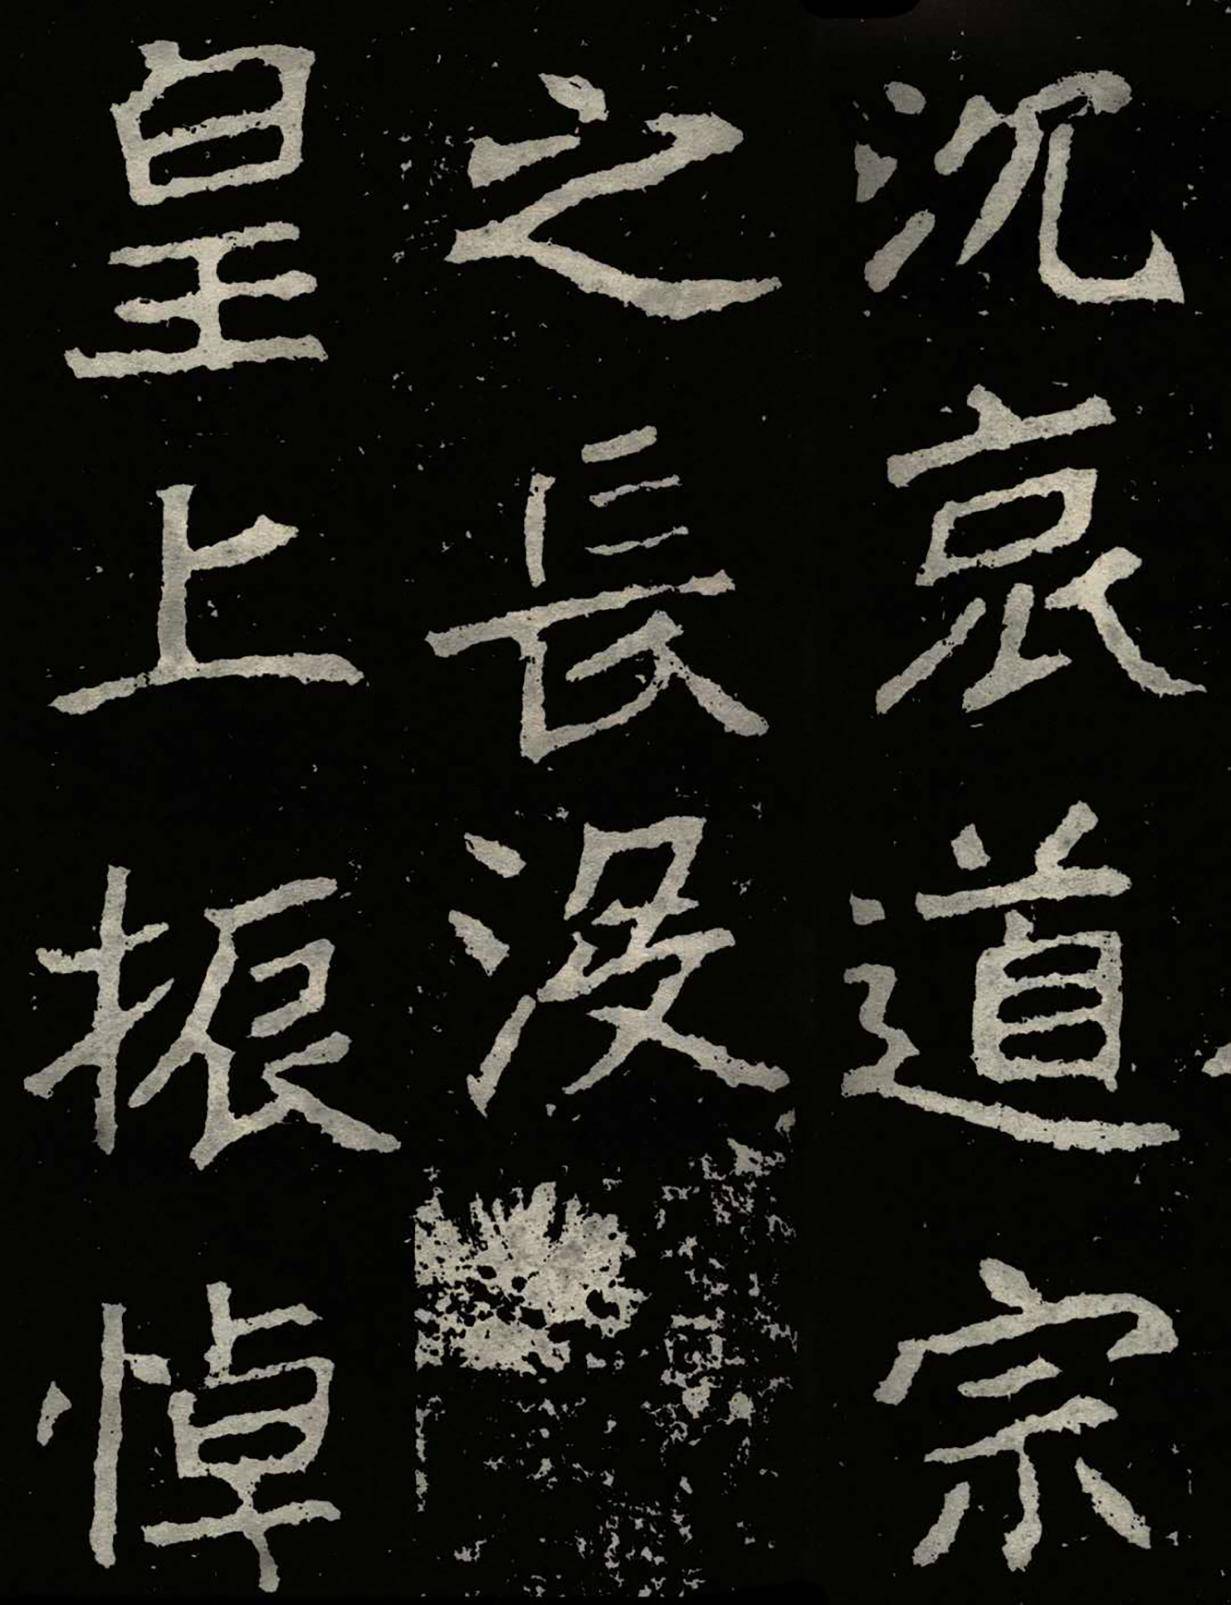 沉哀道宗
之長没
皇上振悼